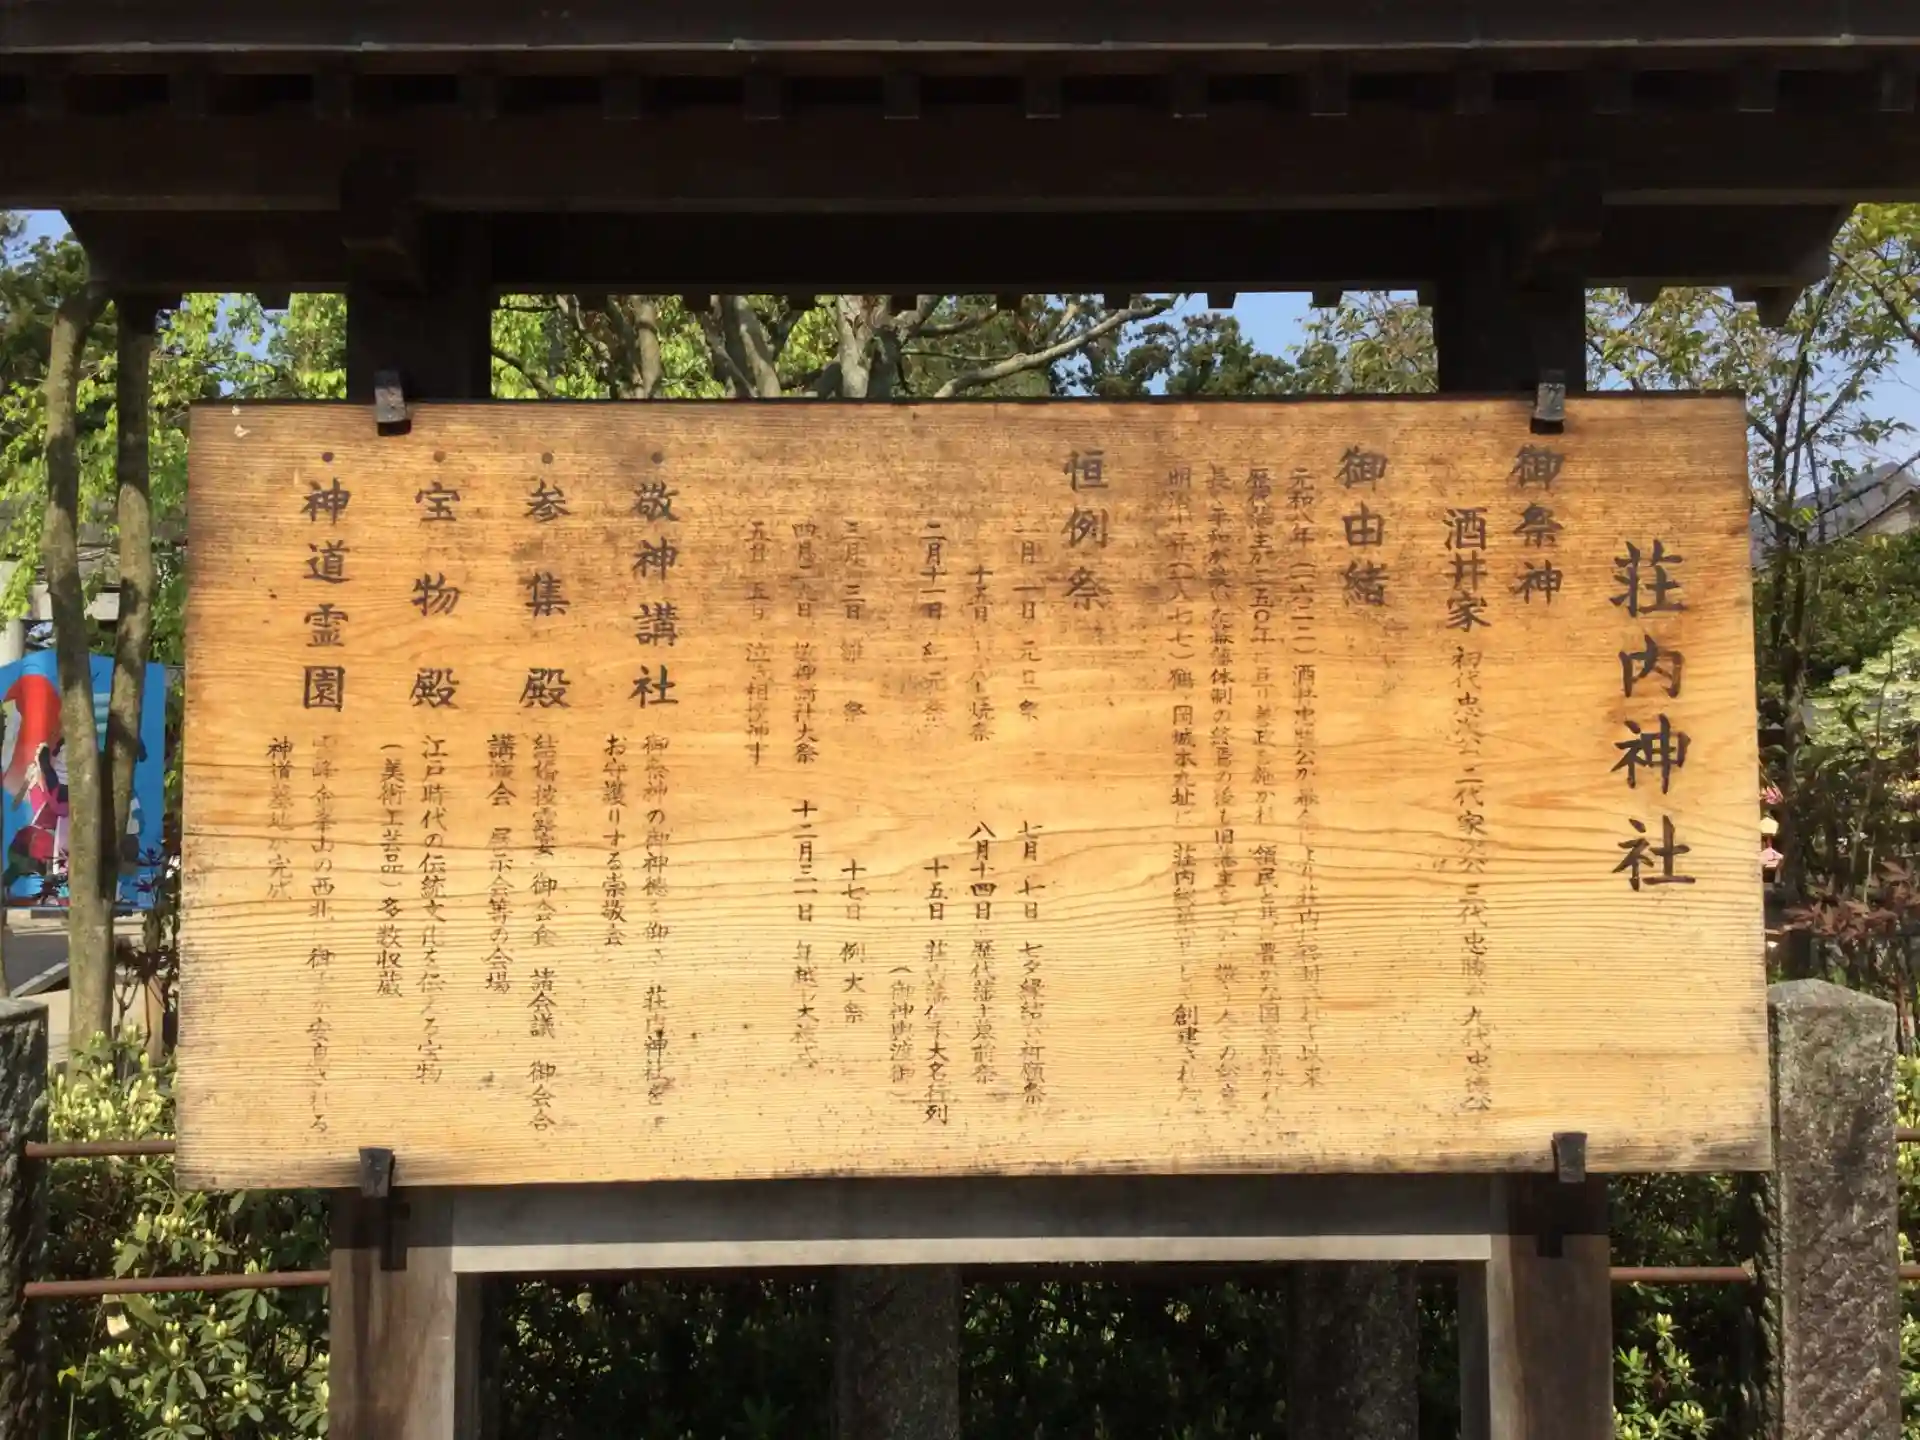 荘内神社
御祭神
酒井家 初代忠次公 二代家次公 三代忠勝公 九代忠徳公
御由緒
元和八年(一六二二)酒井忠勝公が 荘内に移封されて以来
歴代藩主が二五〇年に亘り善政を施かれ 領民と共に豊かな国を築かれた
長い平和が続いた幕藩体制の終焉の後も旧藩主を 敬う人々の
明治十年(一八七七)鶴ヶ岡城本丸址に 荘内 創建された
恒例祭
一月 一日 元旦祭
十五日 焼祭
二月十一日 紀元祭
三月 三日 雛祭
四月二九日 敬神講社大祭
五月 五日 泣き相撲
七月 七日 七夕縁結び祈願祭
八月十四日 歴代藩主墓前祭
十五日 荘内藩伝承大名行列
(御神輿渡御)
十七日 例大祭
十二月三一日 年越し大祓式
・敬神講社
御祭神の御神徳を仰ぎ 荘内神社を
お守護りする崇敬会
・参集殿
結婚披露宴 御会食 諸会議 御会合
講演会 展示会等の会場
・宝物殿
江戸時代の伝統文化を伝える宝物
(美術工芸品)多数収蔵
・神道霊園
金峯山の西北に 御 安息される
神道墓地が完成